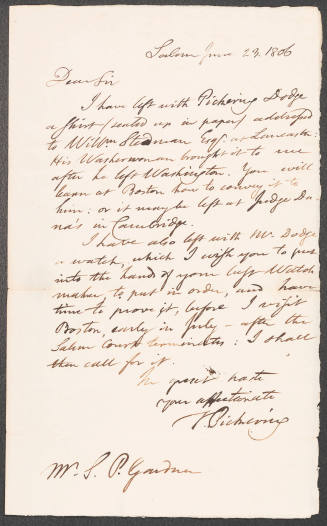 Salem June 23. 1806
Dear Sir
I have left with Pickering Dodge
a shirt (sealed up in paper) addressed
to Willm Stedman Esq. at Lancaster:
His Washerwoman brought it to me
after he left Washington. You will
learn at Boston how to convey it to
him: or it may be left at Judge Da-
na's in Cambridge.
I have also left with Mr. Dodge
a watch, which I wish you to put
into the hand of your best Watch
maker to put in order, and have
time to prove it, before I visit
Boston, early in July - after the
Salem Court terminates: I shall
then call for it.
In great haste
your affectionate
T. Pickering
Mr. S. P. Gardner